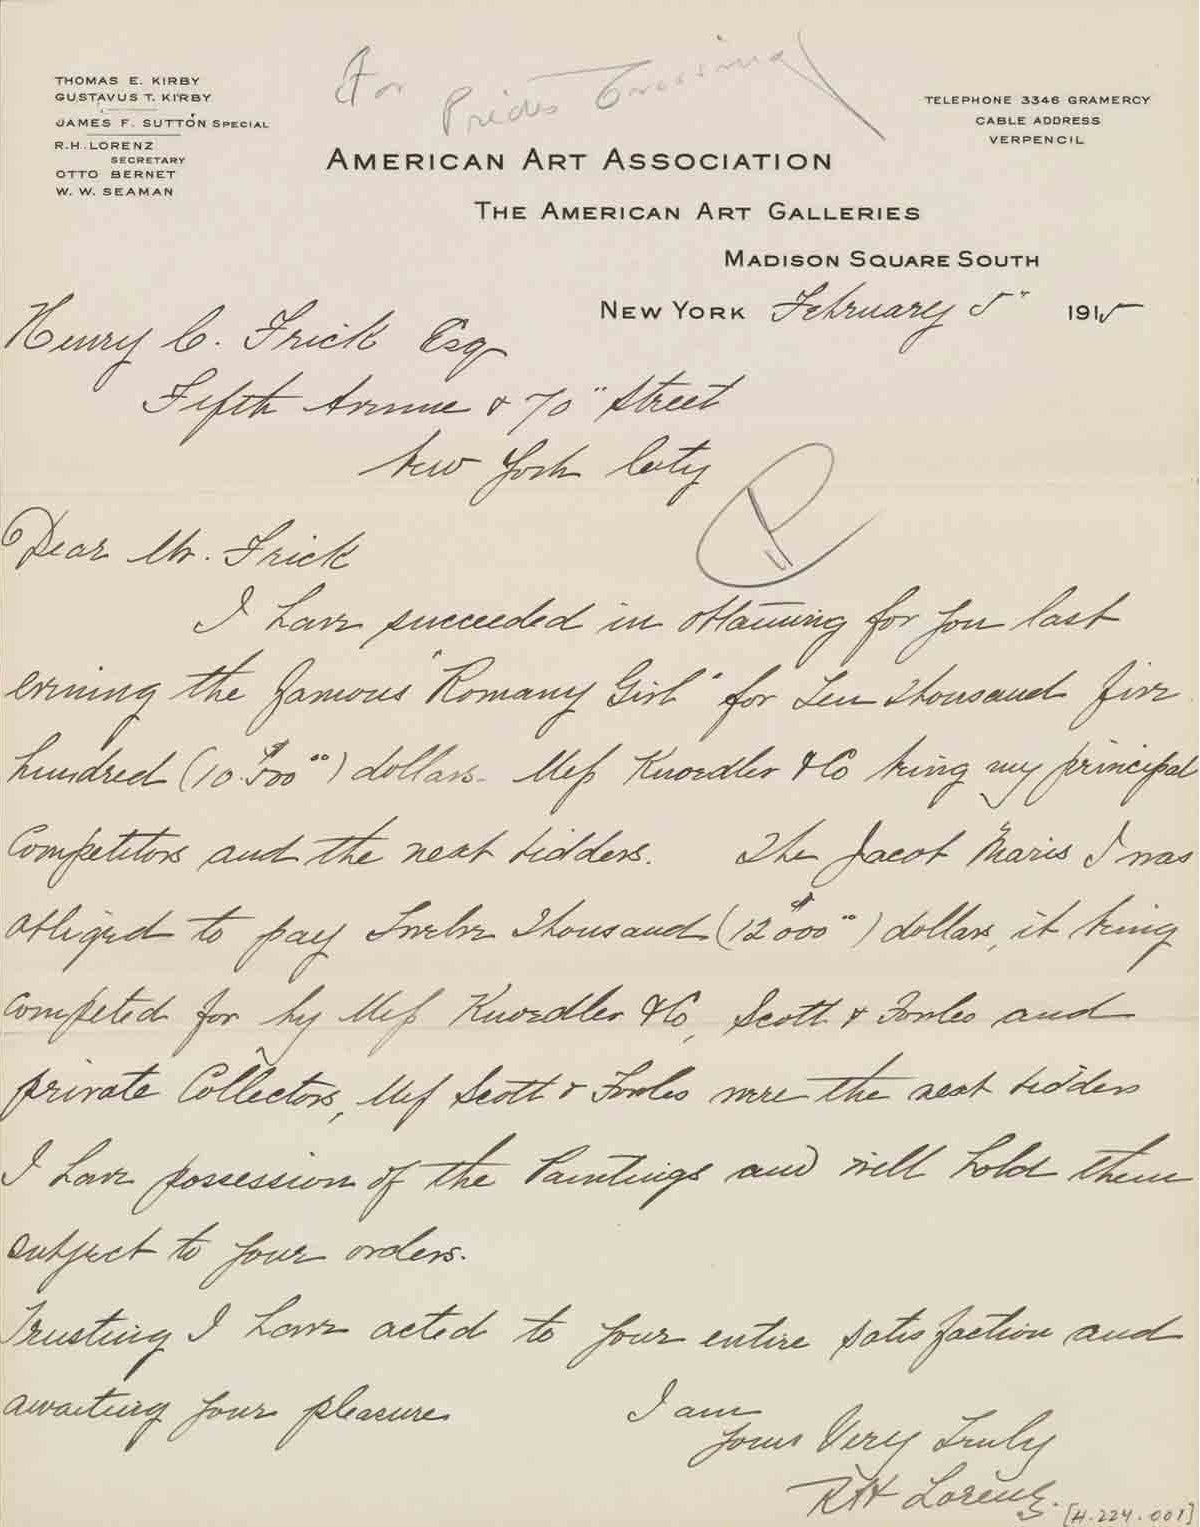 For Prides Crossing
THOMAS E. KIRBY
GUSTAVUS T. KIRBY
JAMES F. SUTTON SPECIAL
R.H. LORENZ
SECRETARY
OTTO BERNET
W. W. SEAMAN
TELEPHONE 3346 GRAMERCY
CABLE ADDRESS
VERPENCIL
AMERICAN ART ASSOCIATION
THE AMERICAN ART GALLERIES
MADISON SQUARE SOUTH
NEW YORK February 5" 1915
Henry C. Frick Esq
Fifth Avenue & 70" Street
New York City
P
Dear Mr. Frick
I have succeeded in obtaining for you last
evening the famous "Romany Girl" for Ten Thousand five
hundred ($10.500 00) dollars- Mess Knoedler & Co being my principal
Competitors and the next bidders. The Jacob Maris I was
obliged to pay Twelve Thousand ($12 000 00) dollars, it being
competed for by Mess Knoedler & Co, Scott & Fowles and
private Collectors, Mess Scott & Fowles were the next bidders
I have possession of the Paintings and will hold them
subject to your orders.
Trusting I have acted to your entire satisfaction and
awaiting your pleasure I am
Yours Very Truly
RH Lorenz.
[H.224.001]